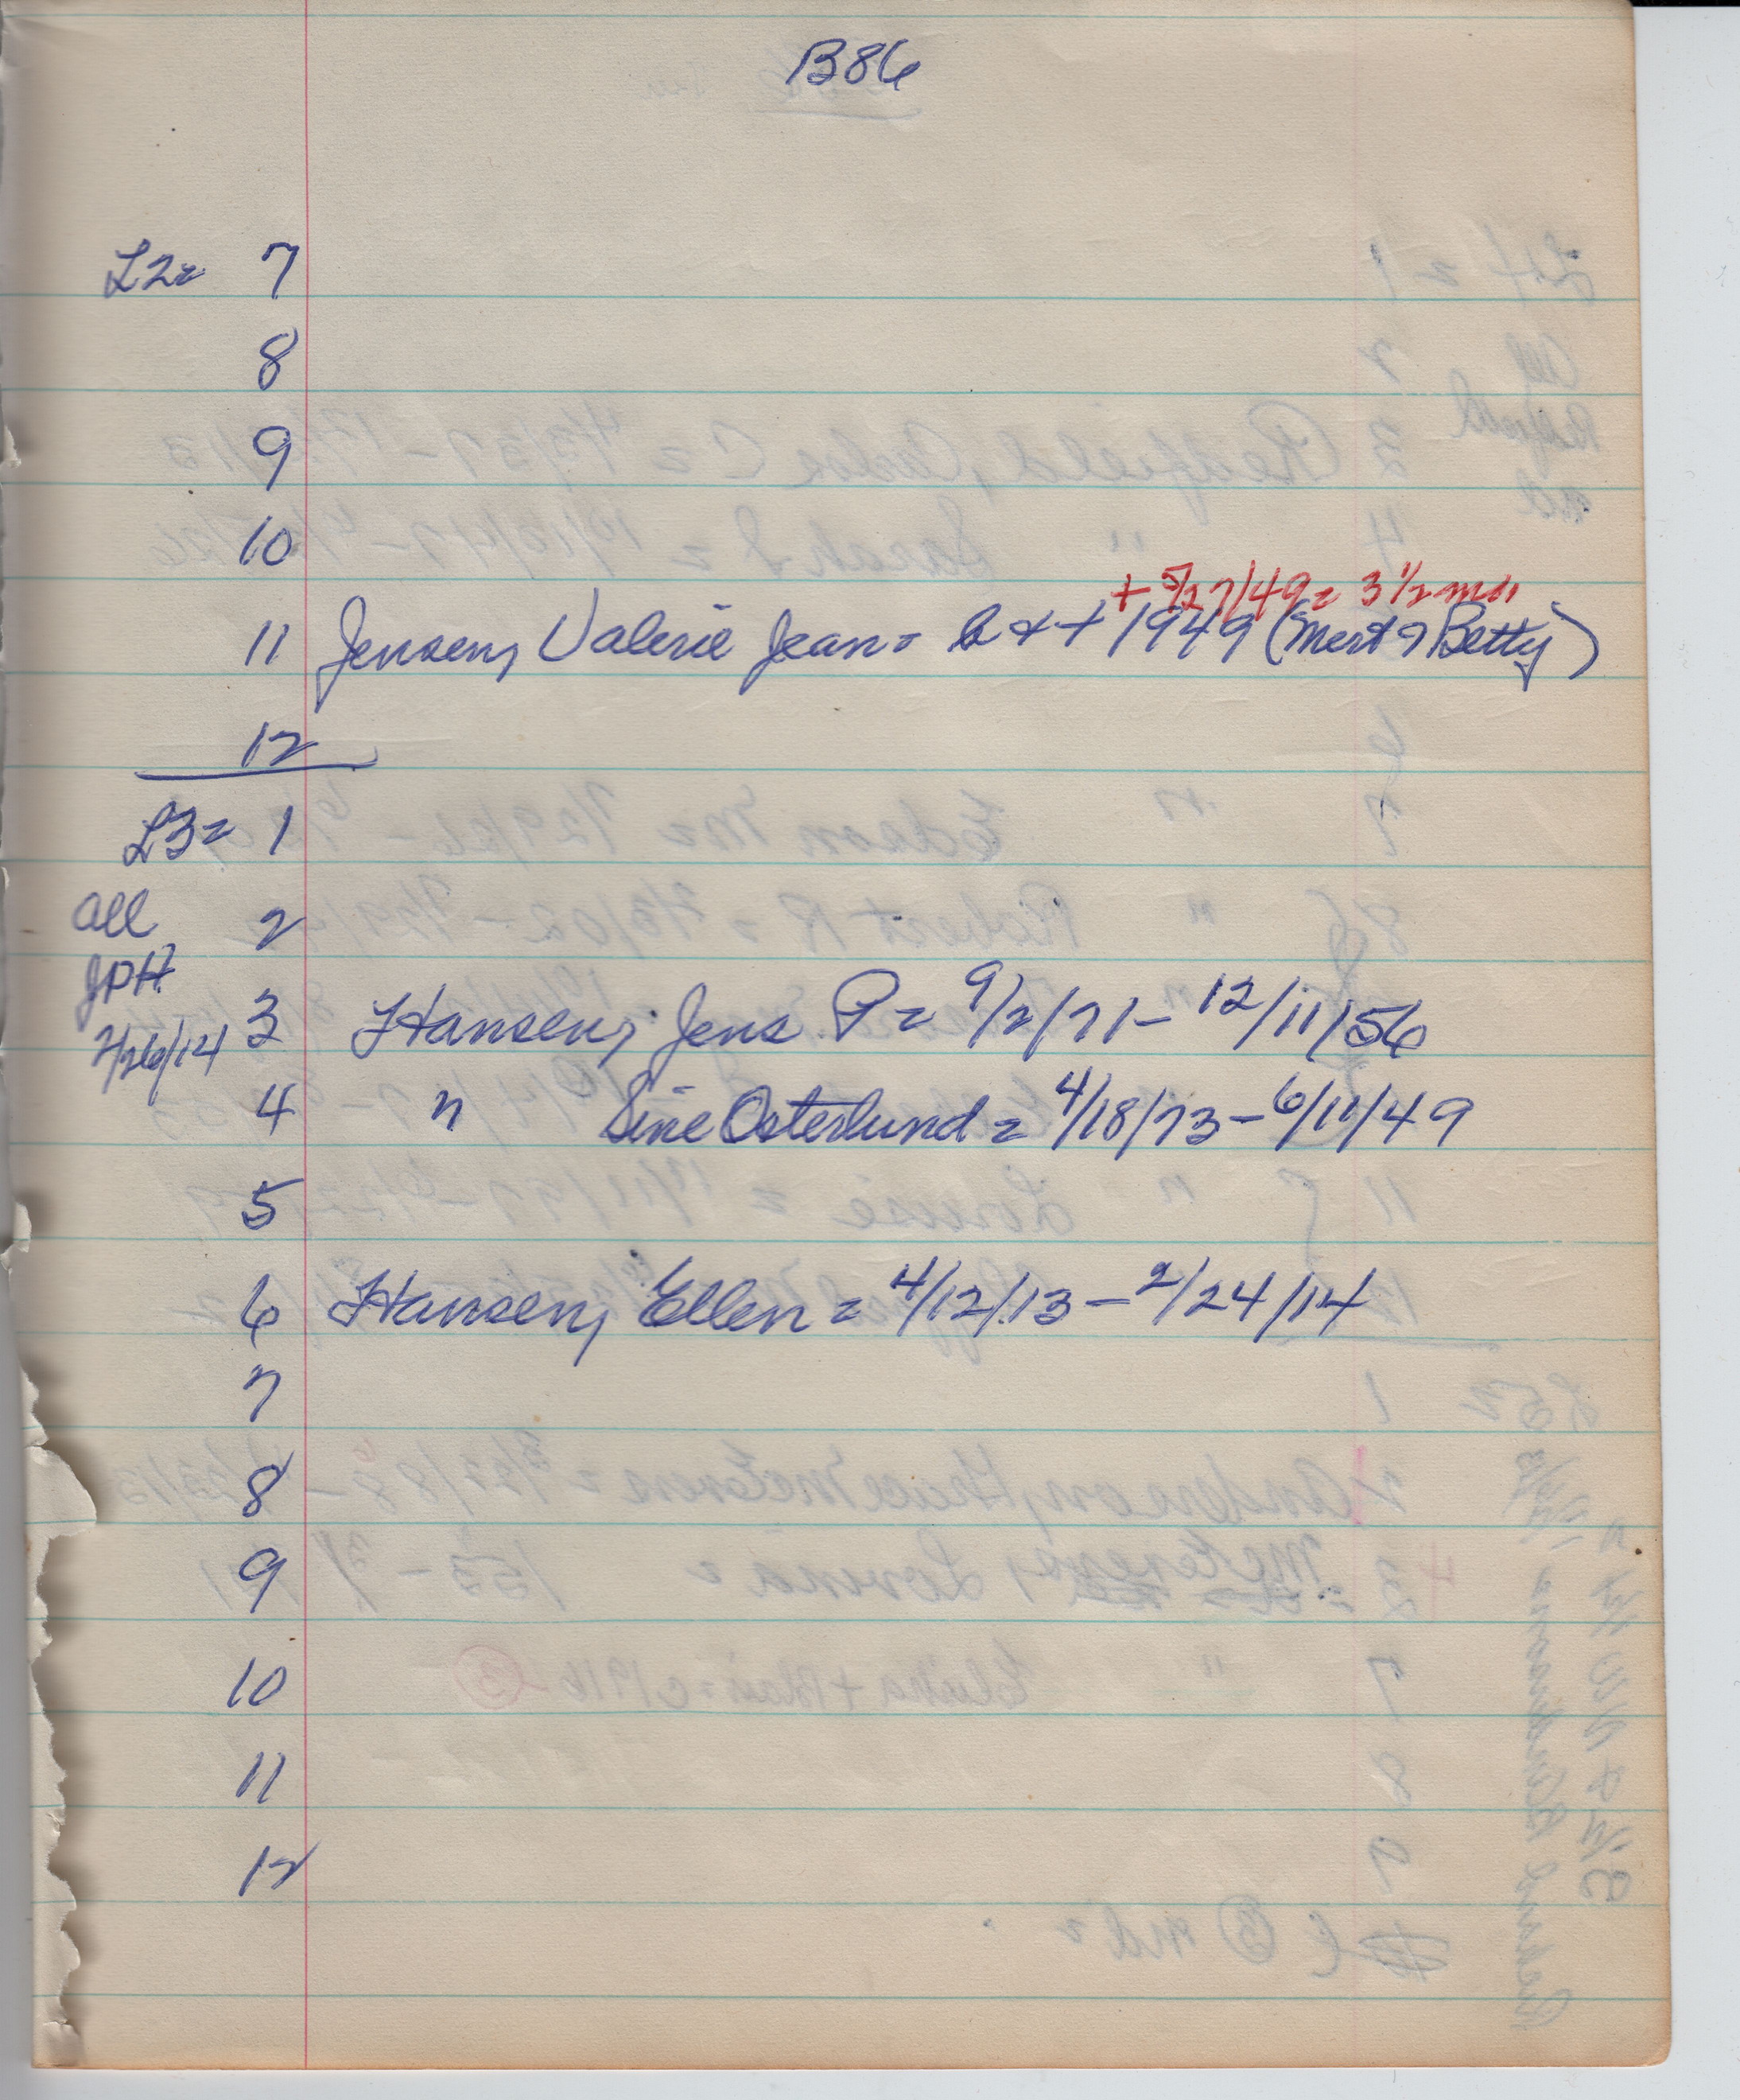 B86
L2= 7
8
9
10
+ 5/27/49= 3 1/2 mos
11 Jensen, Valerie Jean= b & + 1949 (Mert & Betty)
12
L3= 1
all 2
JPH
3 Hansen, Jens P= 9/2/71-12/11/56
2/26/14
4 " Sine Osterlund = 4/18/73-6/11/49
5
6 Hansen, Ellen= 4/12/13-2/24/14
7
8
9
10
11
12